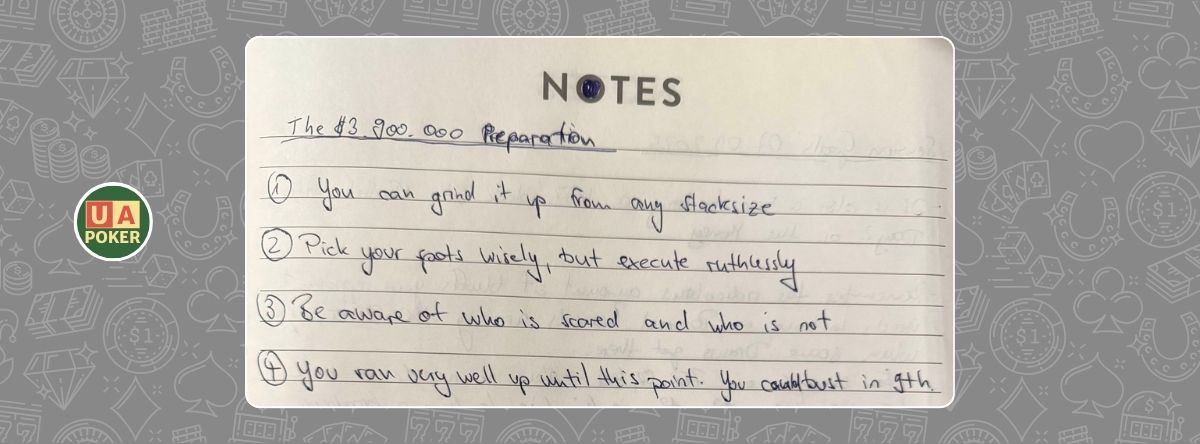 NOTES
The $3.900.000 Preparation
① You can grind it up from any stacksize
② Pick your spots wisely, but execute ruthlessly
③ Be aware of who is scared and who is not
④ You ran very well up until this point. You could bust in 9th
UA
POKER